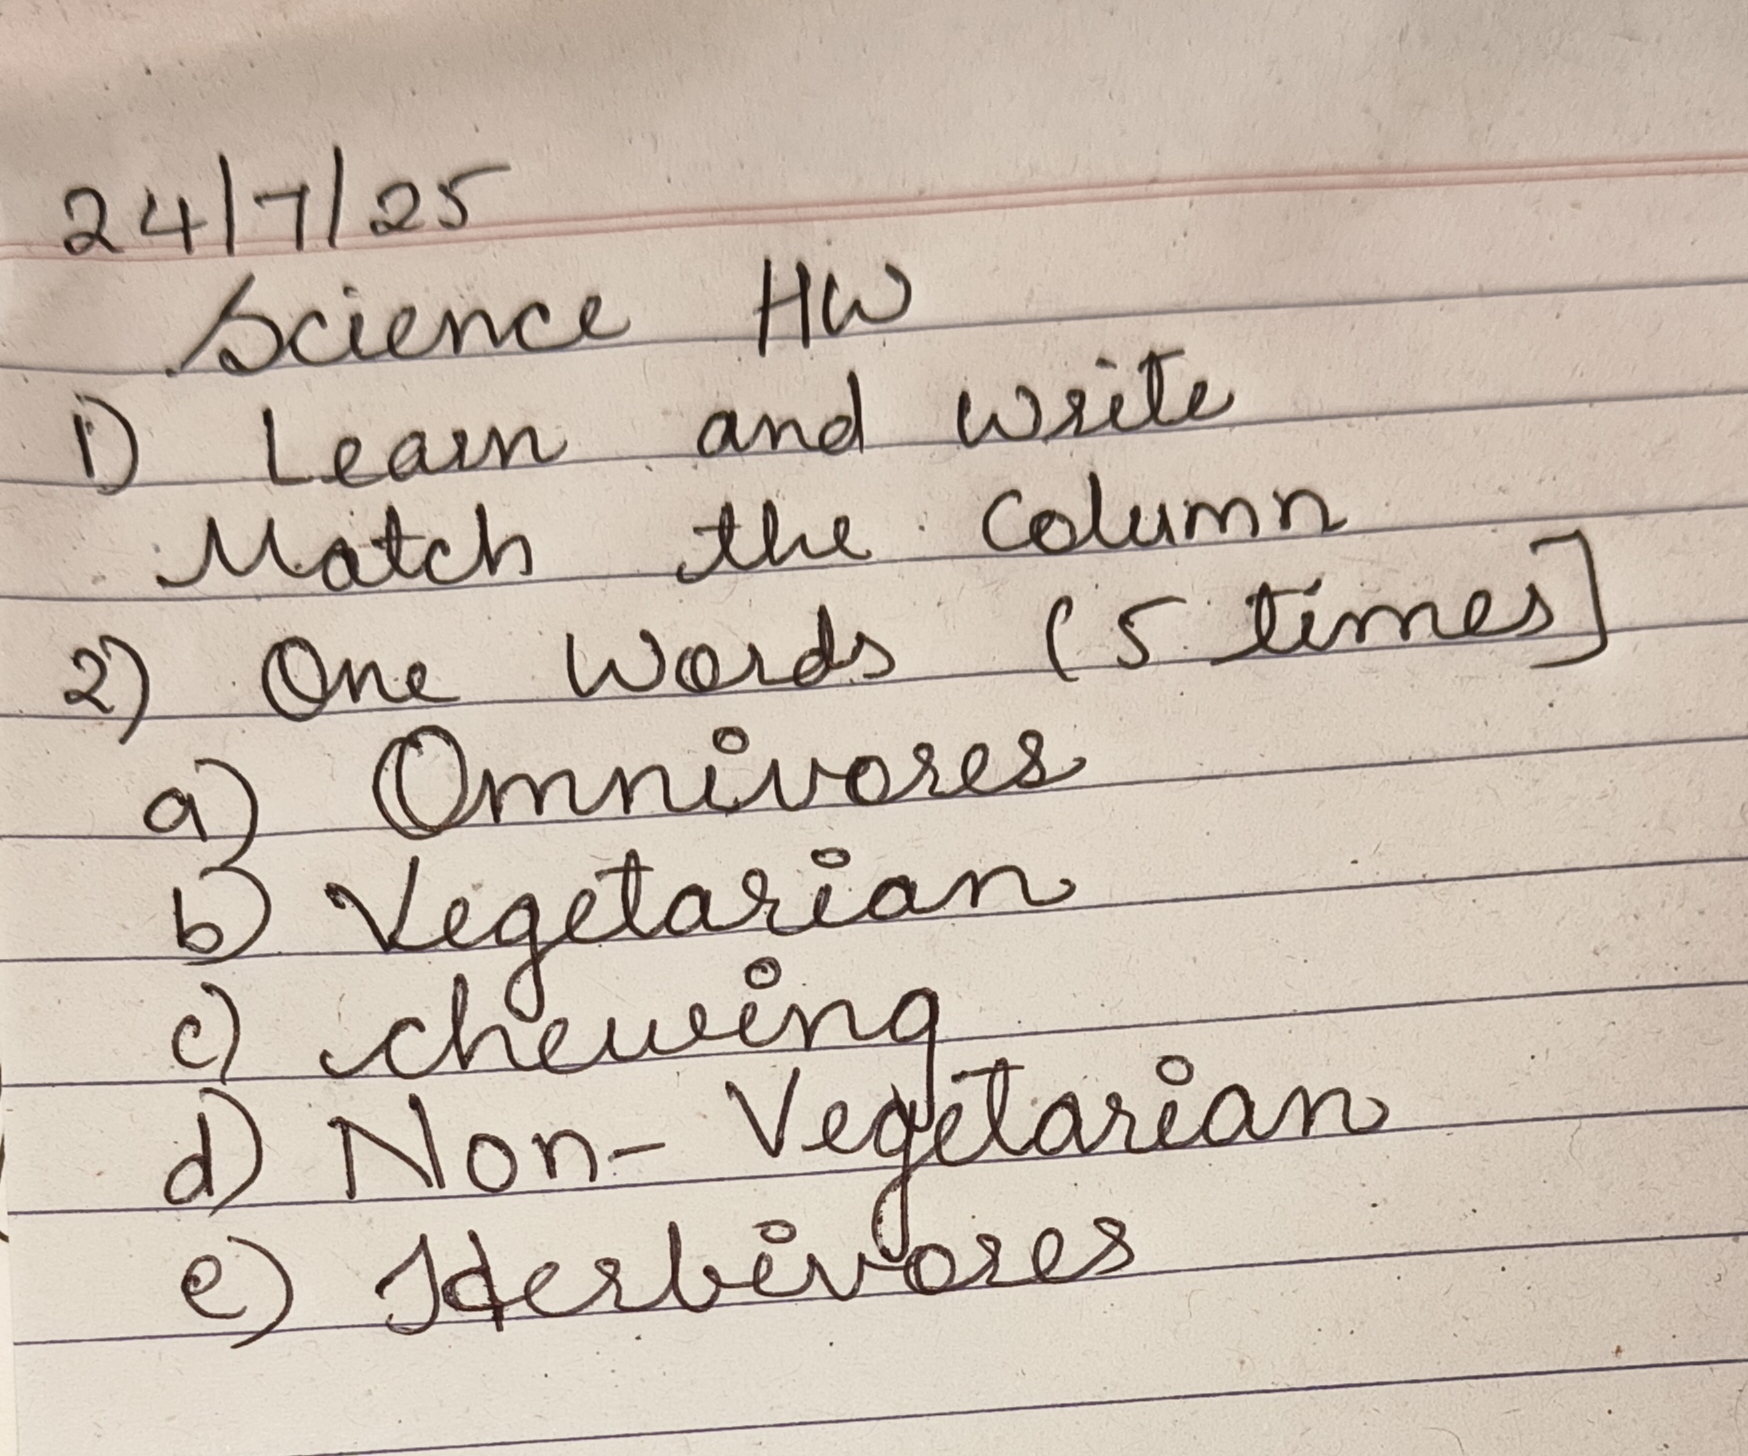 24/7/25
Science HW
1) Learn and write
Match the column
2) One Words (5 times]
a) Omnivores
b) Vegetarian
c) chewing
d) Non-Vegetarian
e) Herbivores